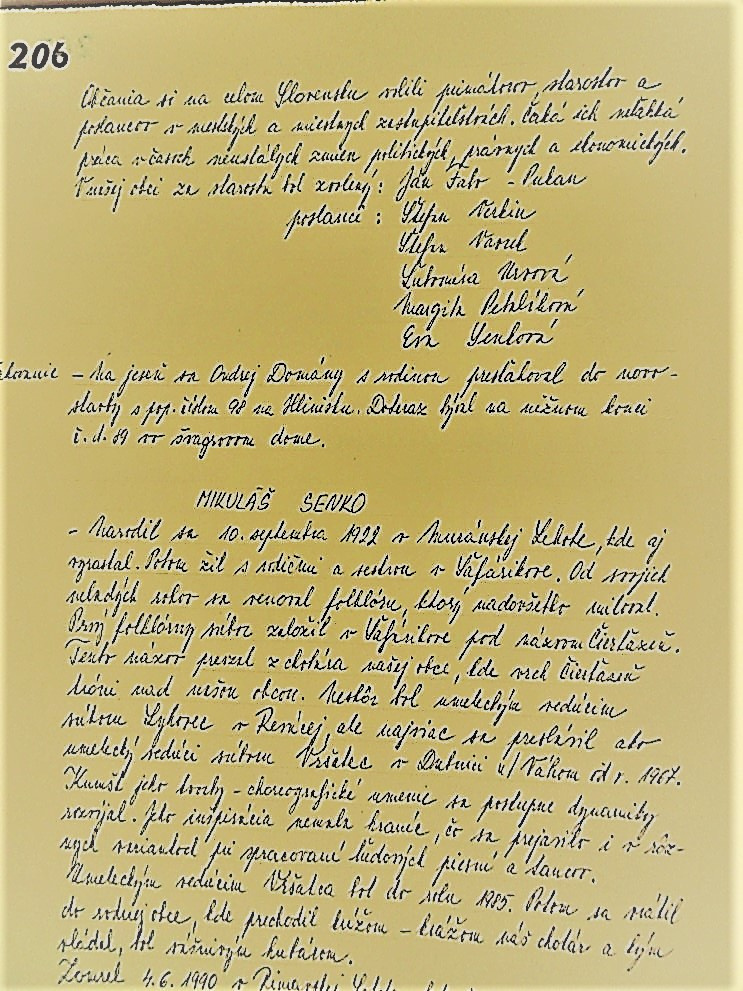 206
Občania si na celom Slovensku volili primátorov, starostov a
poslancov v mestských a miestnych zastupiteľstvách. Čaká ich neľahká
práca v časoch neustálych zmien politických, právnych a ekonomických.
V našej obci za starostu bol zvolený: Ján Fabo - Pukan
poslanci: Štefan
Štefan
Ľubomíra
Margita Petrlíková
Eva Senková
- Na jeseň sa Ondrej Domány s rodinou presťahoval do novo-
stavby s pop. číslom 98 na Hlinisku. Doteraz býval na nižnom konci
č. d. 89 vo švagrovom dome.
MIKULÁŠ SENKO
- Narodil sa 10. septembra 1922 v Muránskej Lehote, kde aj
vyrastal. Potom žil s rodičmi a sestrou v Šafárikove. Od svojich
mladých rokov sa venoval folklóru, ktorý nadovšetko miloval.
Prvý folklórny súbor založil v Šafárikove pod názvom Čierťažeň.
Tento názov prevzal z chotára našej obce, kde vrch Čierťažeň
tróni nad našou obcou. Neskôr bol umeleckým vedúcim
súboru Lykovec v Revúcej, ale najviac sa preslávil ako
umelecký vedúci súboru Vršatec v Dubnici n/Váhom od r. 1967.
Kumšt jeho tvorby - choreografické umenie sa postupne dynamicky
rozvíjal. Jeho inšpirácia nemala hraníc, čo sa prejavilo i v rôz-
nych variantoch pri spracovaní ľudových piesní a tancov.
Umeleckým vedúcim Vršatca bol do roku 1985. Potom sa vrátil
do rodnej obce, kde prechodil krížom - krážom náš chotár a kým
vládal, bol vášnivým hubárom.
Zomrel 4.6.1990 v Rimavskej